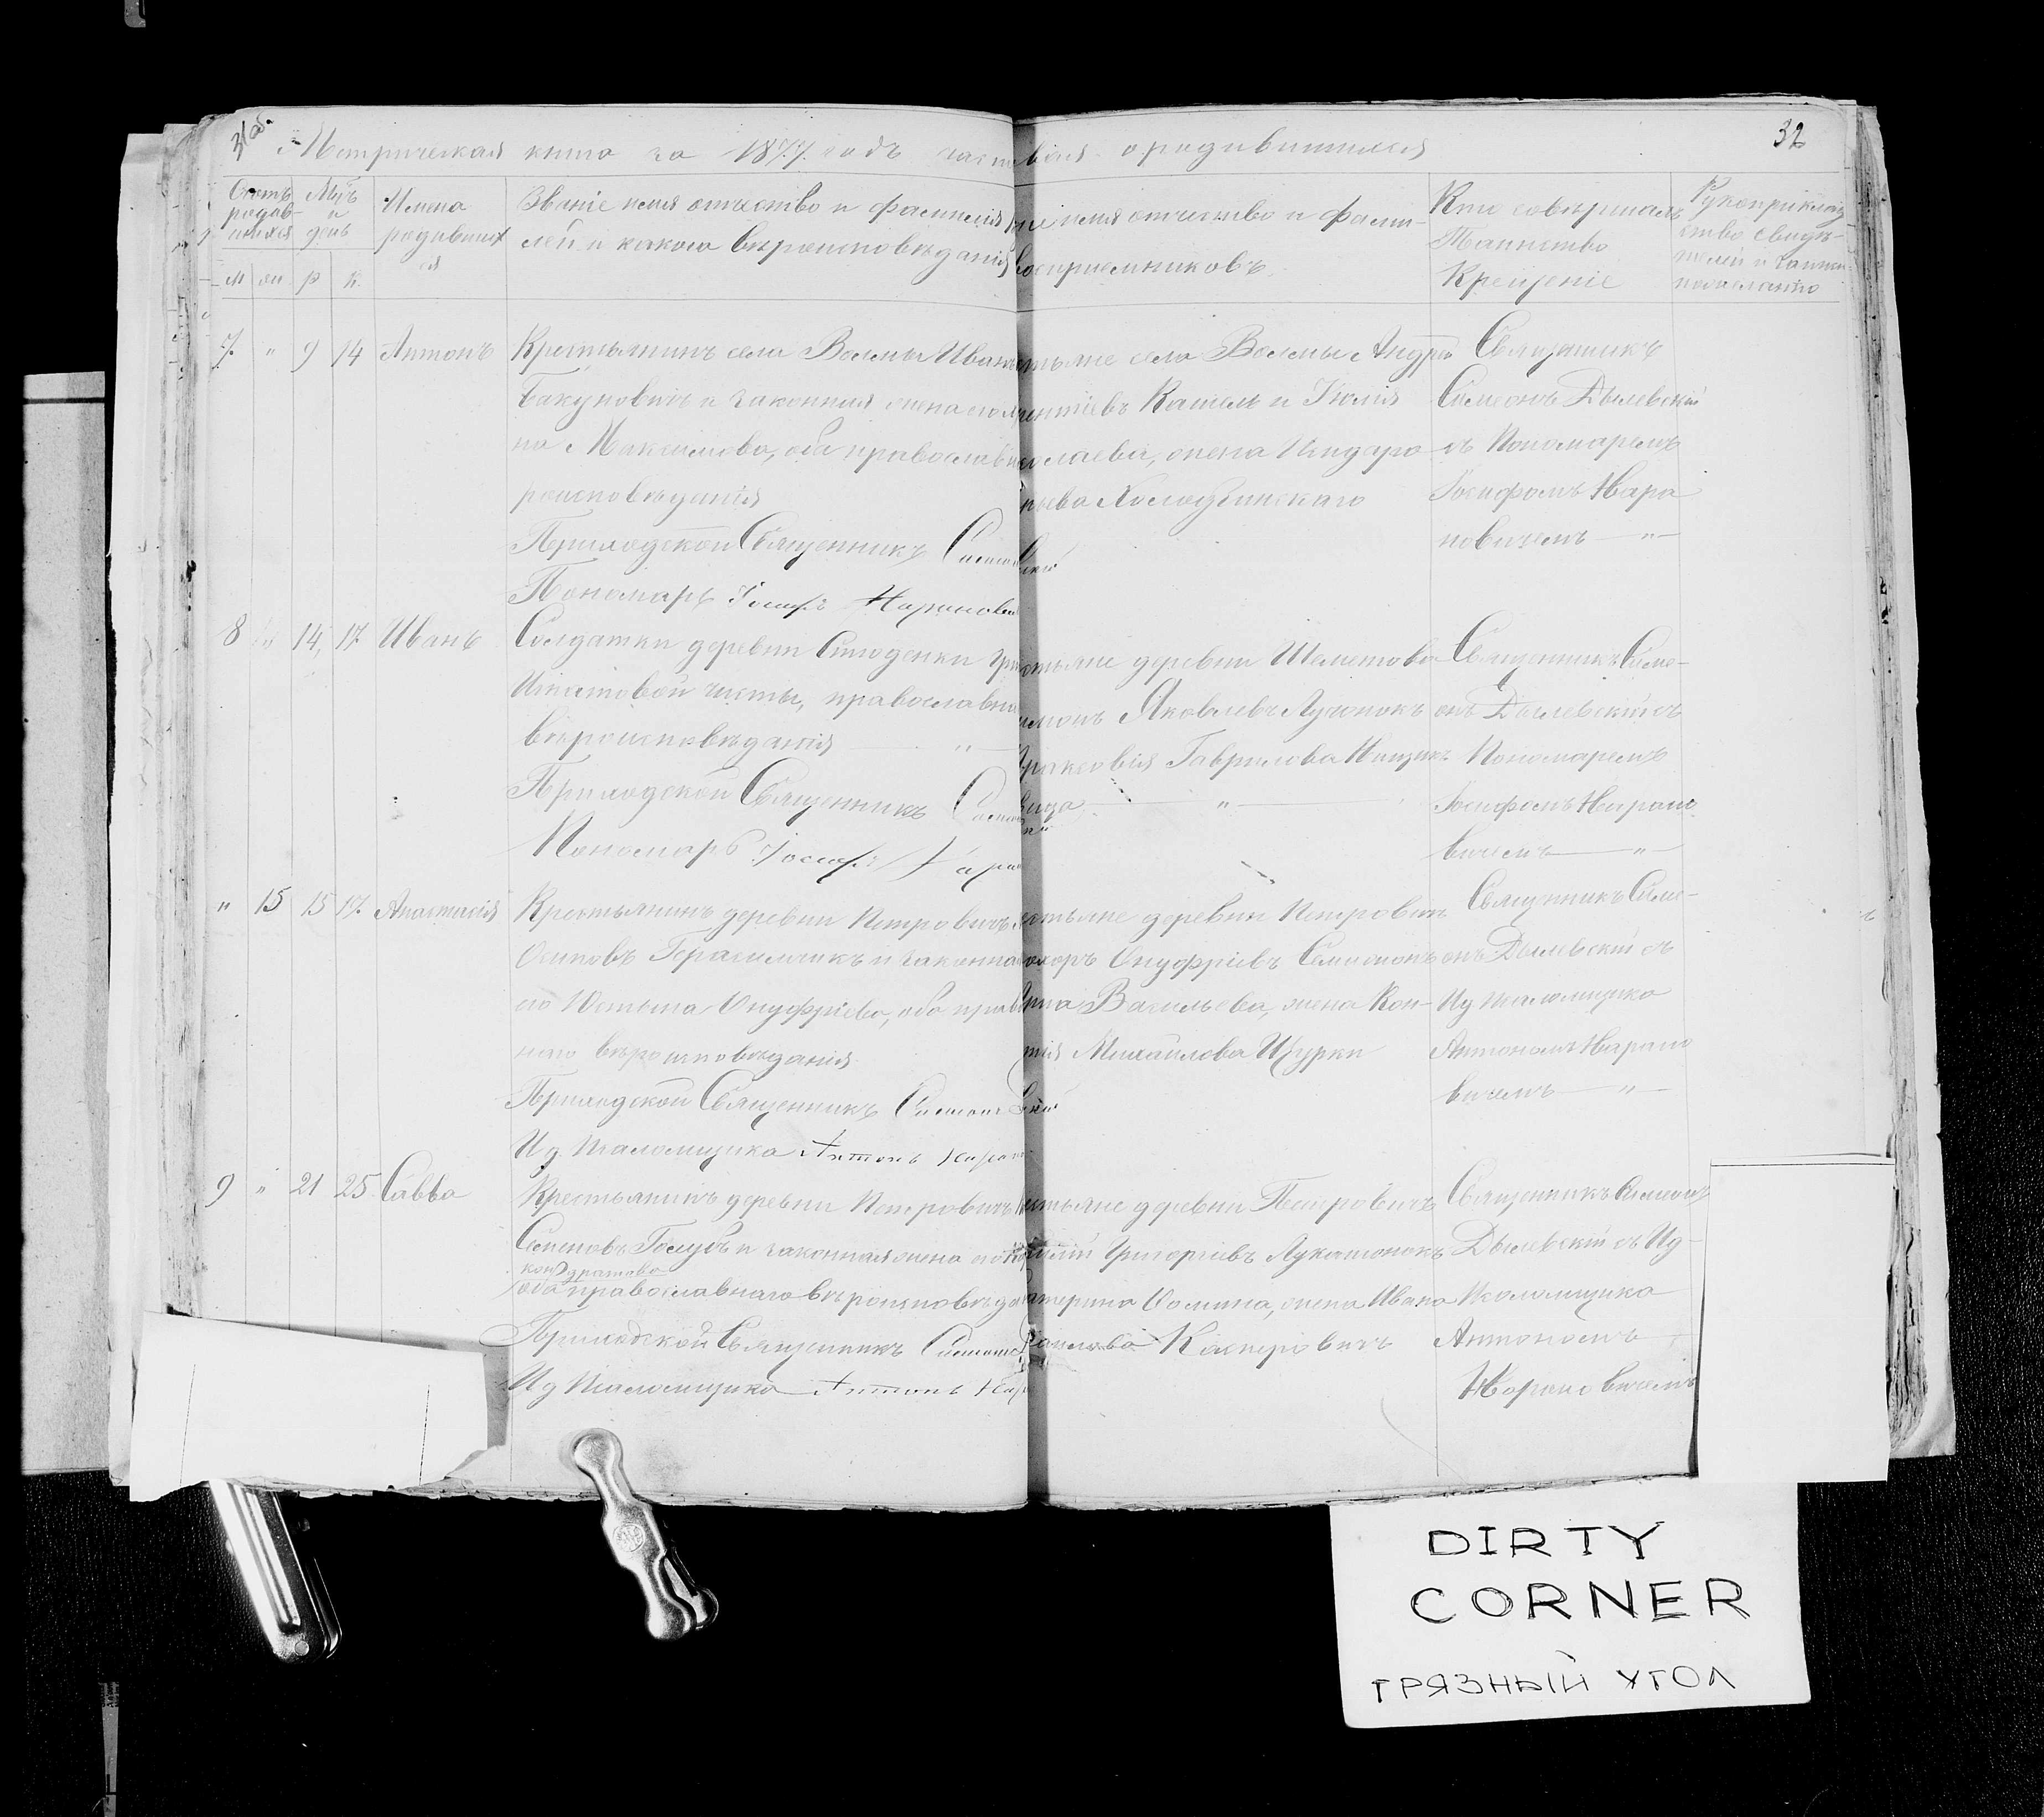 31об.
32
Метрическая книга за 1877. годъ часть о родившихся
Счетъ родив-шихся
Мѣц. и день
Имена родившихся
Званіе имя отчество и фамилія
лей и какого вѣроисповѣданія
имя отчество и фами-
воспріемниковъ
Кто совершалъ
Таинство
Крещеніе
Рукоприклад
ство свидѣ-
телей о записи
по желанію
М Ж Р К.
7. " 9 14 Антонъ
Крестьянинъ села Волмы Иванъ
Бакуновичъ и законная жена его
на Максимова, оба православн
роисповѣданія
Приходской Священникъ Симеон
Пономарь Іосифъ Наранови
стьяне села Волмы Андрей
ентіевъ Кашель и Юлія
колаева, жена Исидора
рьева Холодзинскаго
скій
Священникъ
Симеонъ Дылевскій
съ Пономаремъ
Іосифомъ Нара
новичемъ "
8 " 14, 17 Иванъ
Солдатки деревни Студенки
Игнатовой части, православна
вѣроисповѣданія "
Приходской Священникъ Симеон
Пономарь Іосифъ Наран
стьяне деревни Шеметова
Яковлевъ Лучонокъ
раксовія Гаврилова
"
Священникъ Симе-
онъ Дылевскій съ
Пономаремъ
Іосифомъ Нарано
вичемъ "
" 15 15 17. Анастасія
Крестьянинъ деревни Петровичъ
Осиповъ Герасимчикъ и законна
его Устинья Онуфріева, оба прав
наго вѣроисповѣданія
Приходской Священникъ Симеонъ
И д Псаломщика Антонъ Наран
стьяне деревни Петровичъ
охоръ Онуфріевъ Семионокъ
нна Васильева, жена Кон-
Михайлова Щурки
скій
Священникъ Симе-
онъ Дылевскій съ
Ид Псаломщика
Антономъ Нарано
вичемъ "
9 " 21 25 Савва
Крестьянинъ деревни Петровичъ
Семеновъ Голубъ и законная жена его
Кондратова
оба православнаго вѣроисповѣда
Приходской Священникъ Симеон
И д Псаломщика Антонъ Нар
стьяне деревни Петровичъ
Григоріевъ Лукашонокъ
атерина Ѳомина, жена Ивана
Касперовичъ
Священникъ Симеонъ
Дылевскій съ Ид-
Псаломщика
Антономъ
Нарановичемъ
DIRTY
CORNER
ГРЯЗНЫЙ УГОЛ